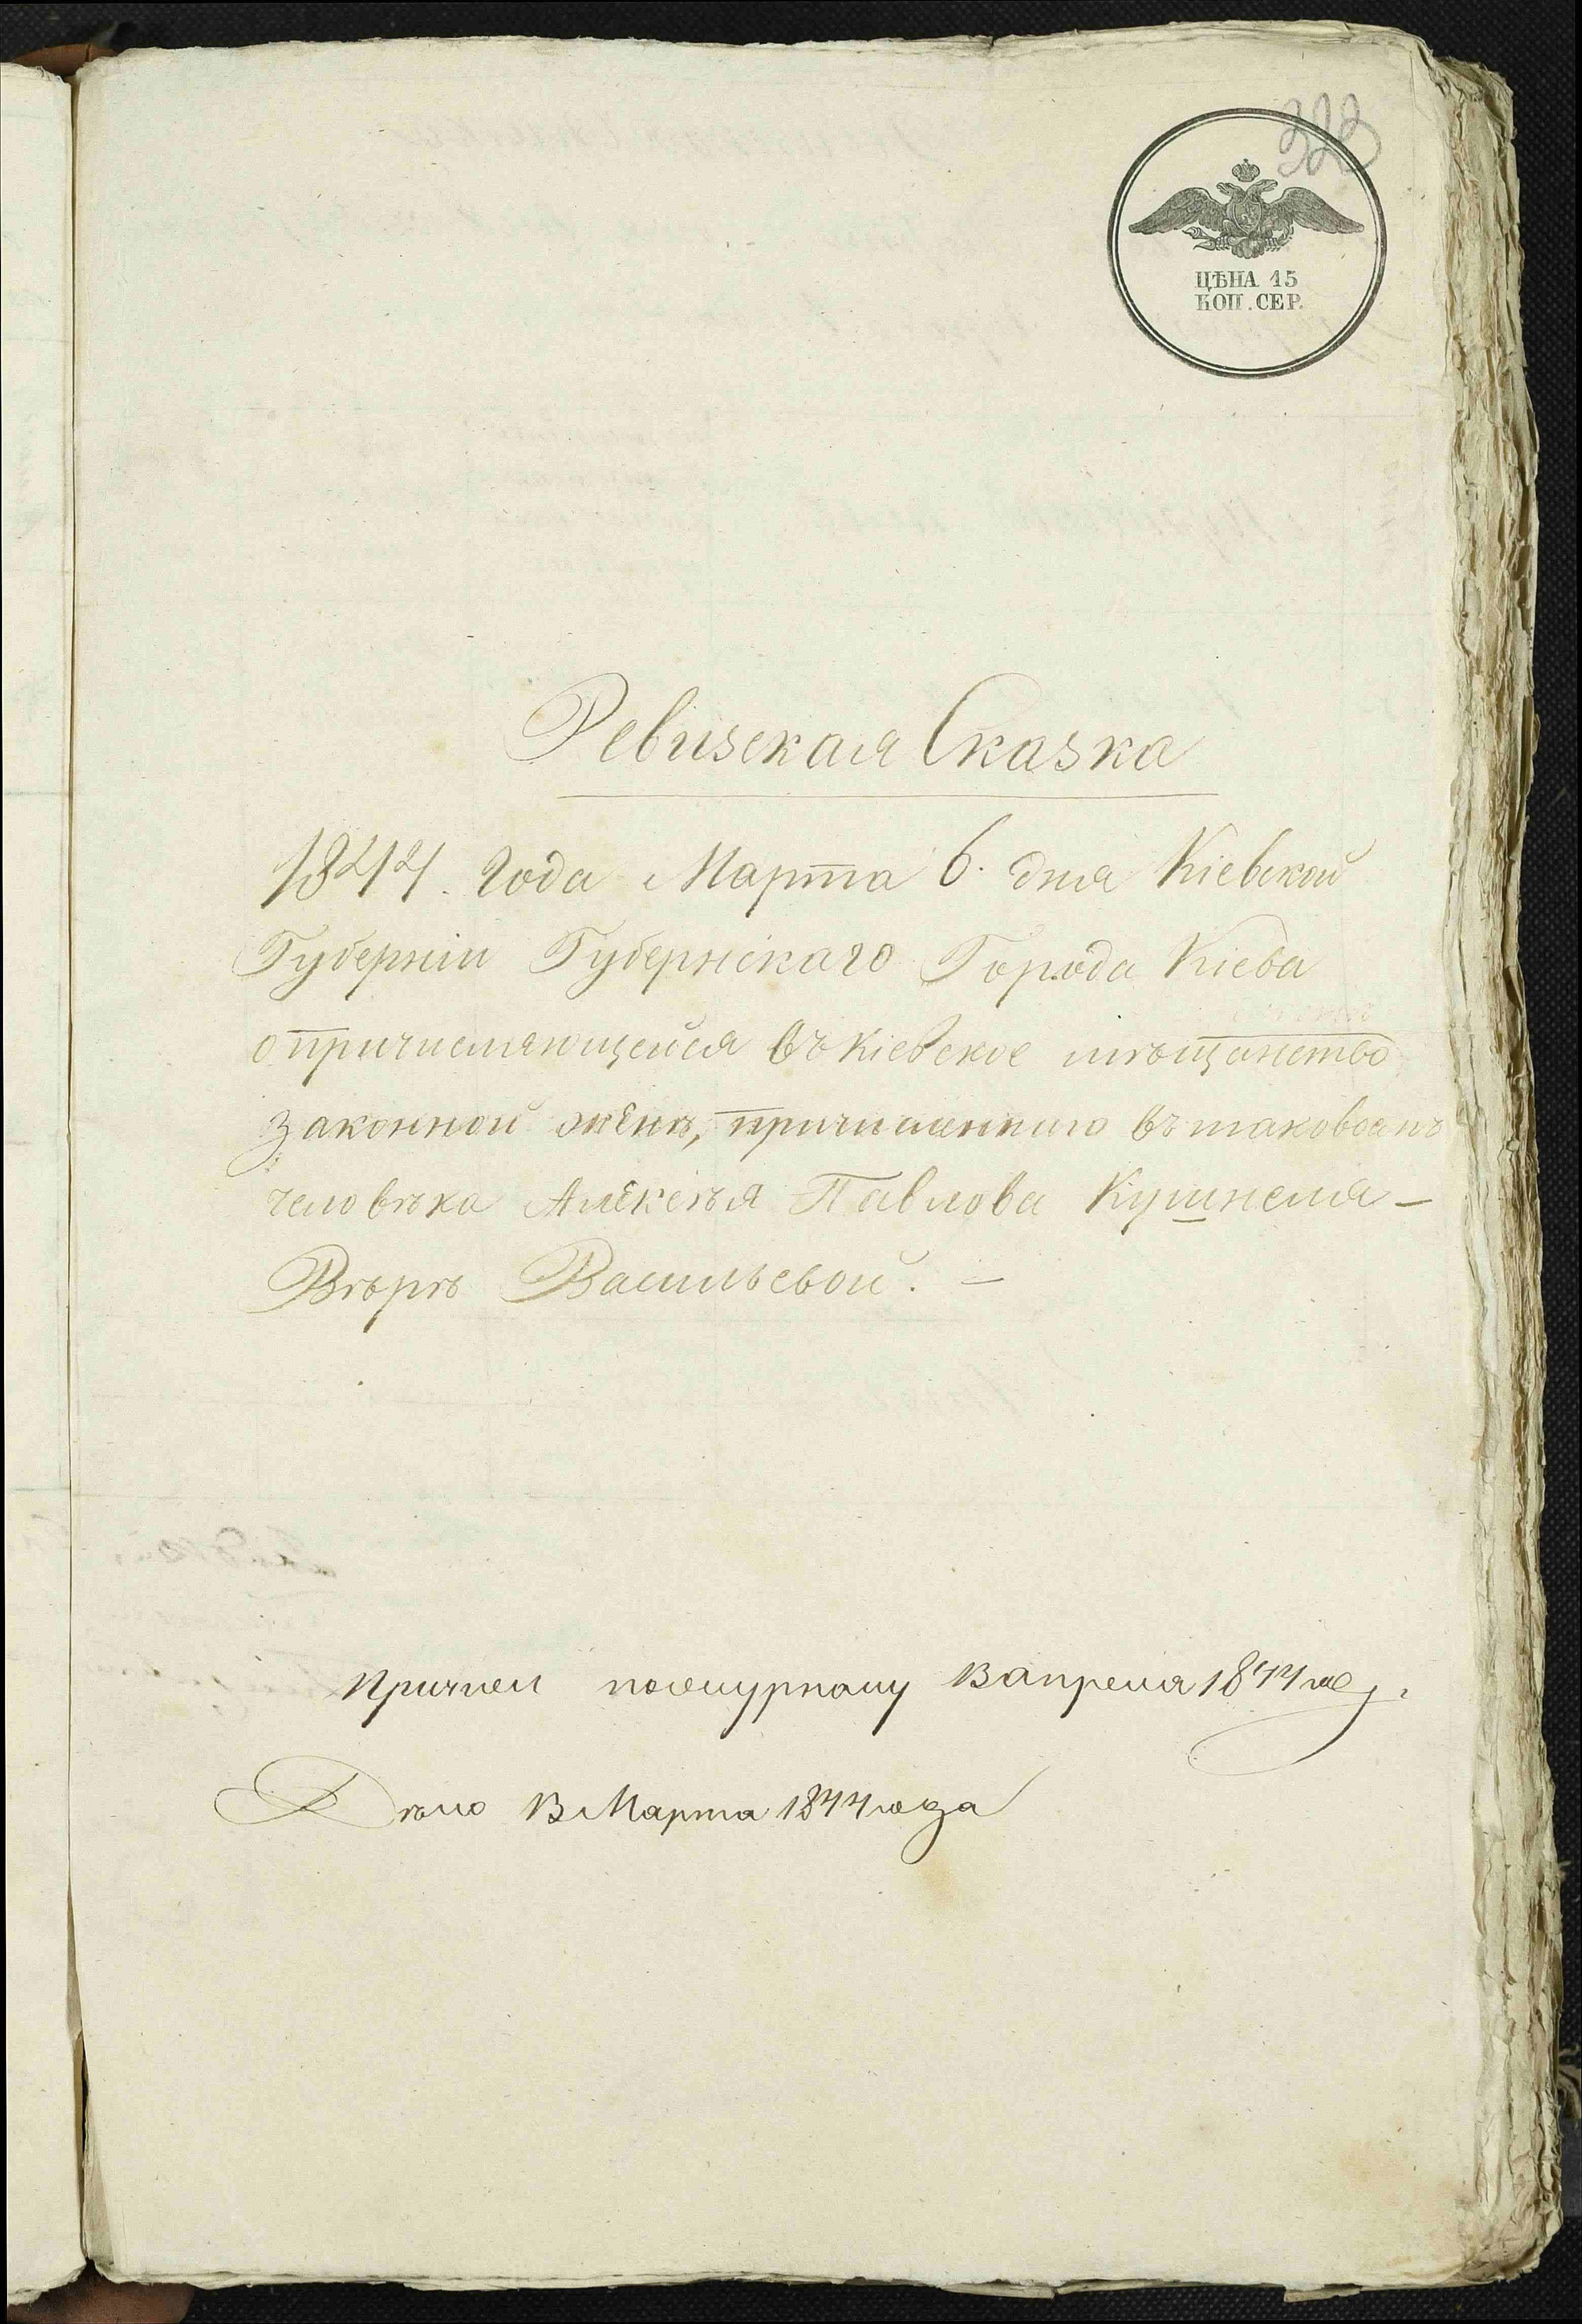 323
ЦѢНА 15
КОП. СЕР.
Ревизская Сказка
1844. Года Марта 6. дня Кіевской
Губерніи Губернскаго Города Кіева
о причисляющейся въ Кіевское мѣщанство
законной женѣ, причисленнаго въ таковоежъ
человѣка Алексѣя Павлова Кушнеля —
Вѣрѣ Васильевой. —
Причтен по журналу 13 апреля 1844 году.
Дѣло 13 Марта 1844 года